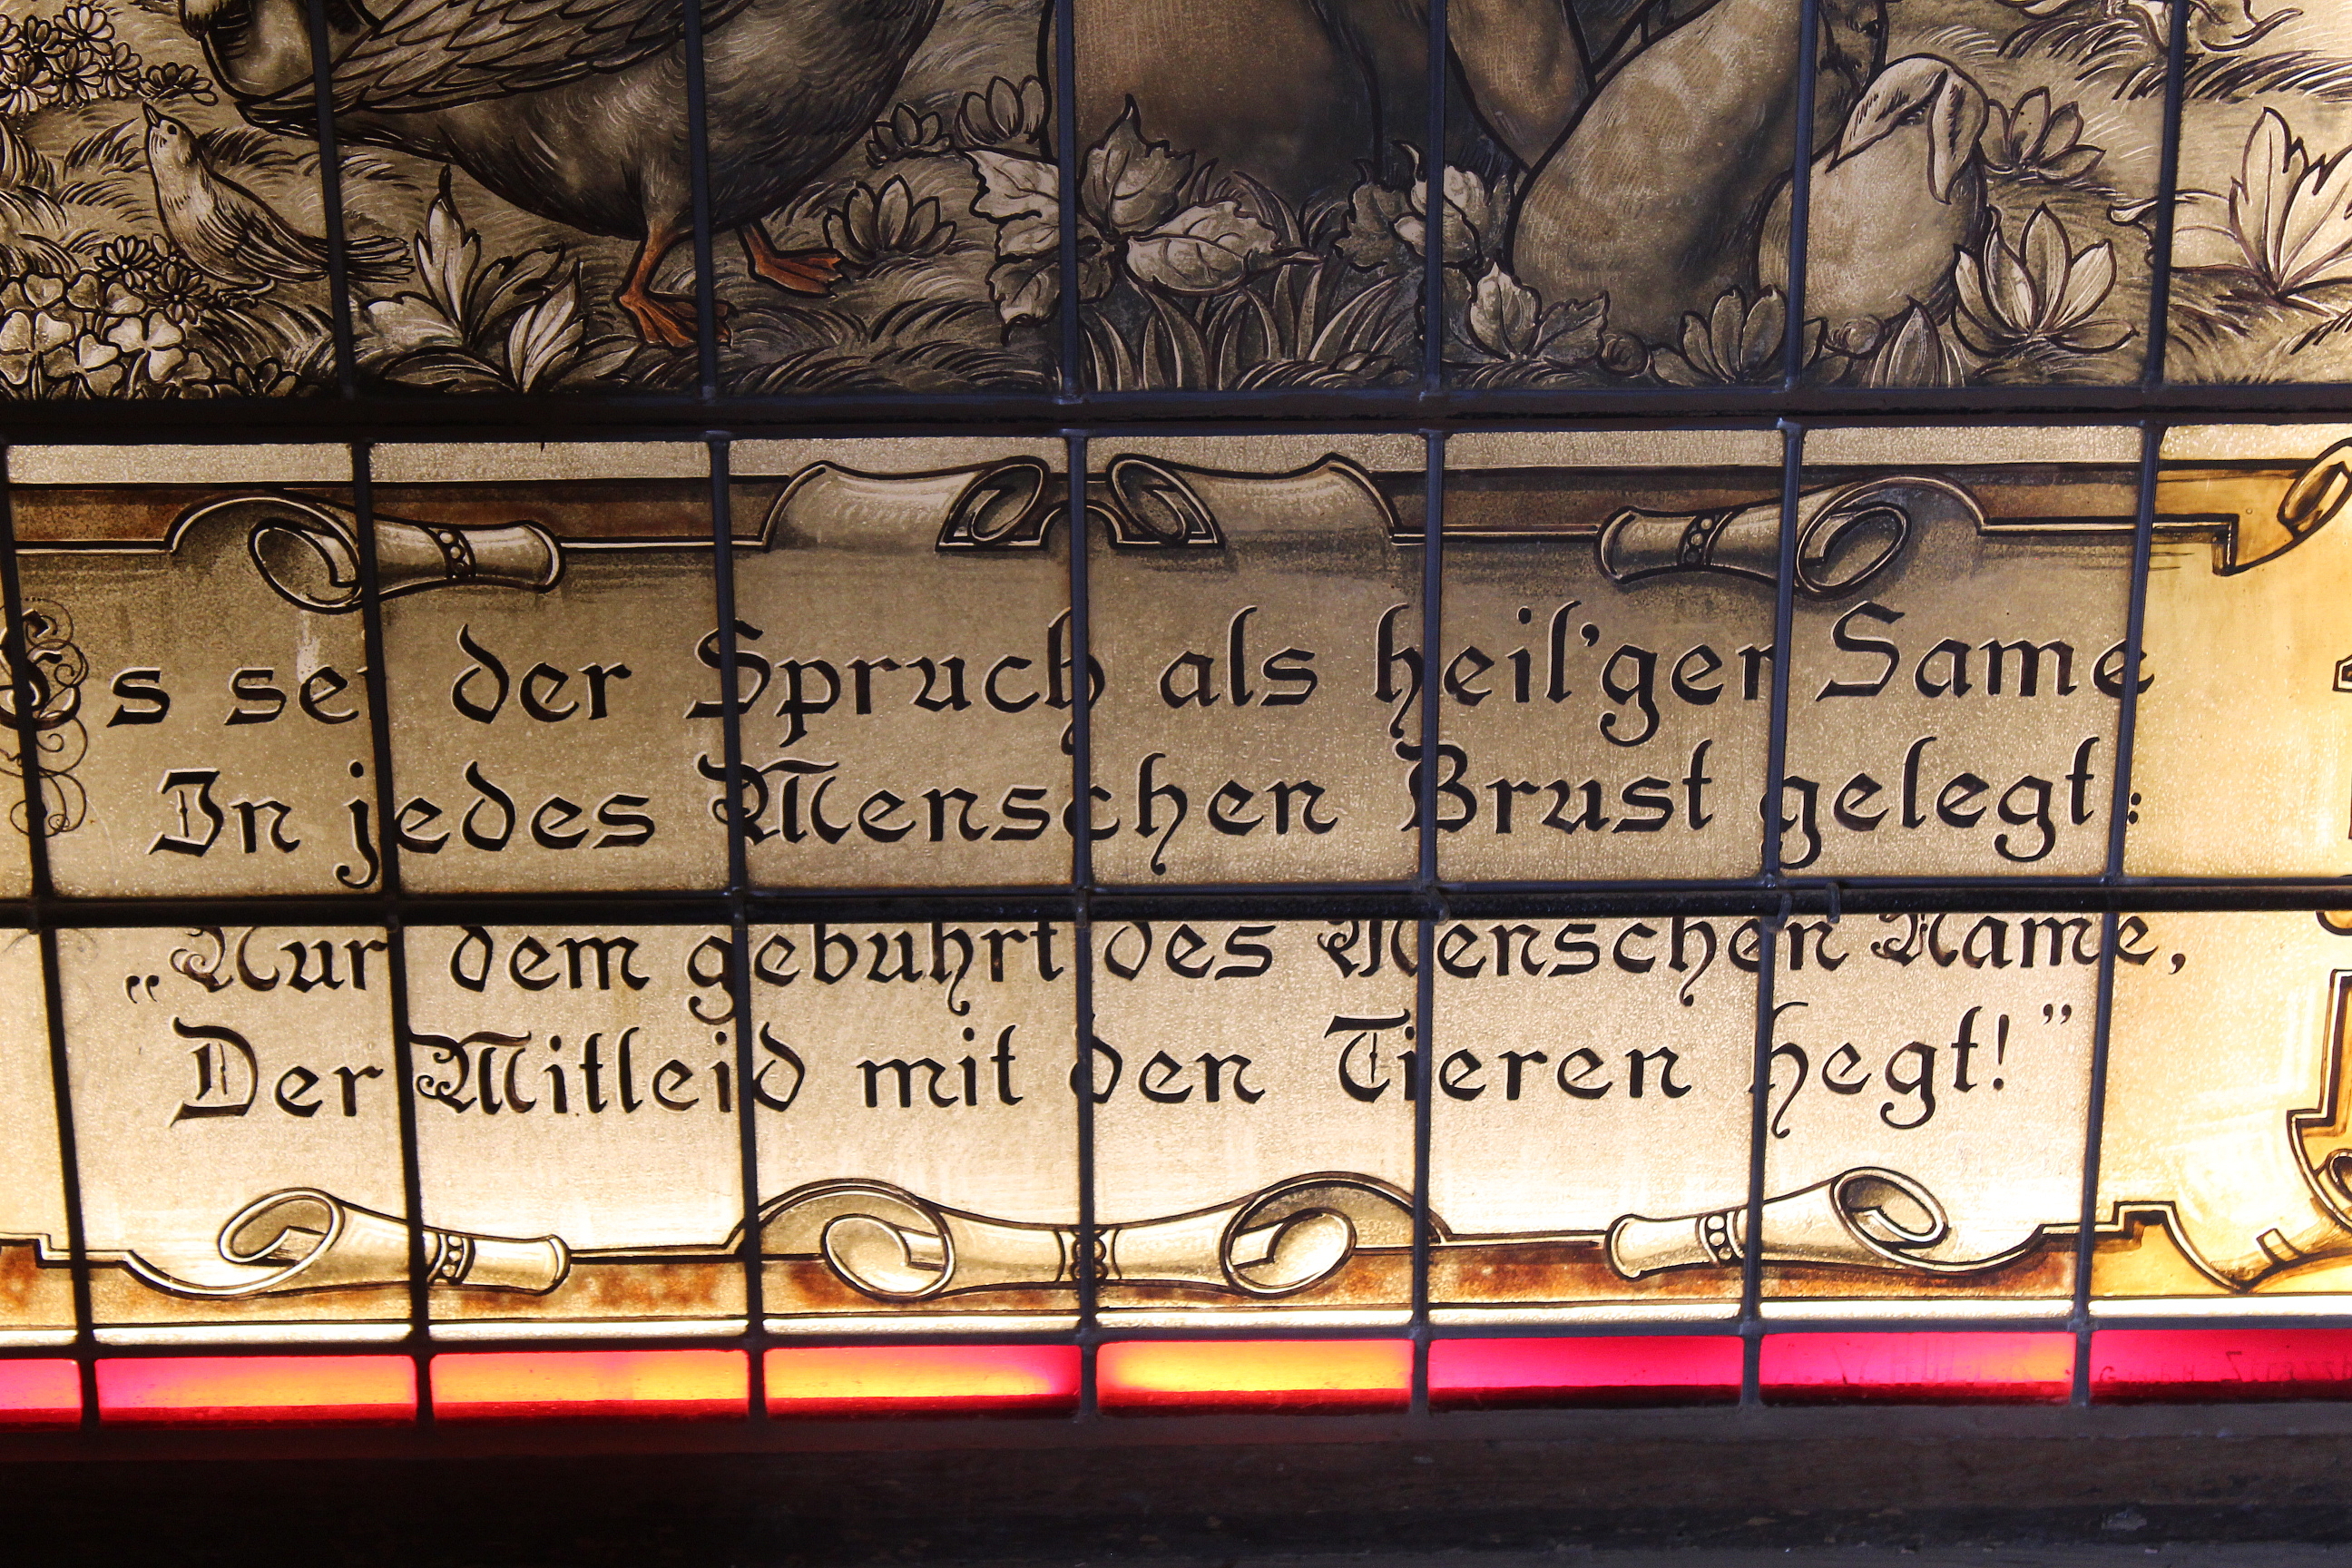 Es sei der Spruch als heil'ger Same
In jedes Menschen Brust gelegt:
„Nur dem gebuhrt des Menschen Name,
Der Mitleid mit den Tieren hegt!”